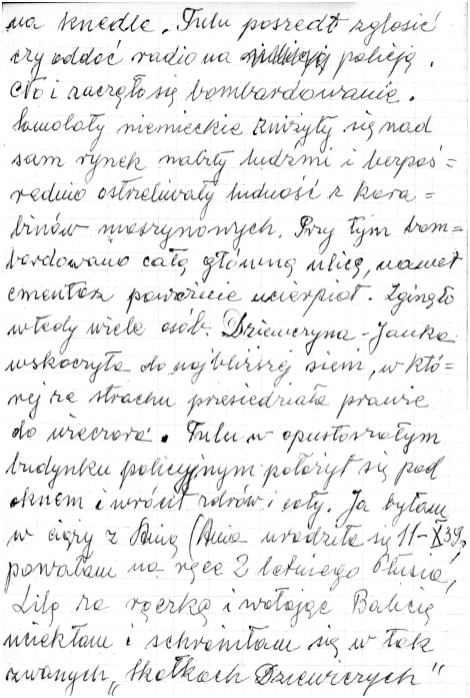 na knedle. Tulu poszedł zgłosić
czy oddać radio na policję.
No i zaczęło się bombardowanie.
Samoloty niemieckie zniżyły się nad
sam rynek nabity ludźmi i bezpoś=
rednio ostrzeliwały ludność z kara=
binów maszynowych. Przy tym bom=
bardowano całą główną ulicę, nawet
cmentarz poważnie ucierpiał. Zginęło
wtedy wiele osób. Dziewczyna - Janka
wskoczyła do najbliższej sieni, w któ=
rej ze strachu przesiedziała prawie
do wieczora. Tulu w opustoszałym
budynku policyjnym położył się pod
oknem i wrócił zdrów i cały. Ja byłam
w ciąży z Anią (Ania urodziła się 11-X 39,
porwałam na ręce 2 letniego Plusia,
Lilę za rączkę i wołając Babcię
uciekłam i schroniłam się w tak
zwanych „Skałkach Dziewiczych"